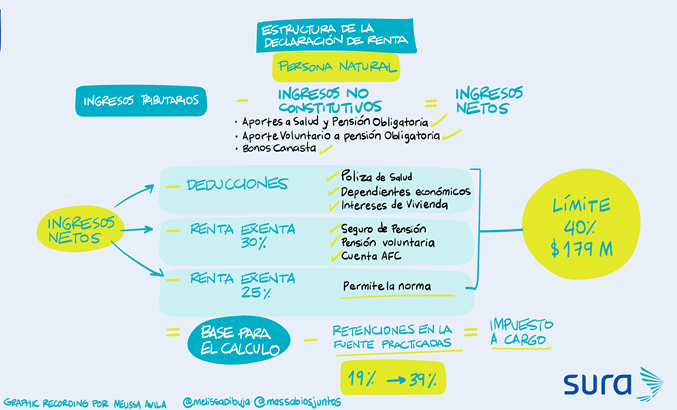 ESTRUCTURA DE LA
DECLARACIÓN DE RENTA
PERSONA NATURAL
INGRESOS TRIBUTARIOS - INGRESOS NO = INGRESOS
CONSTITUTIVOS NETOS
• Aportes a Salud y Pensión Obligatoria
• Aporte Voluntario a pensión Obligatoria
• Bonos Canasta
INGRESOS
NETOS
- DEDUCCIONES
Poliza de Salud
Dependientes económicos
Intereses de Vivienda
- RENTA EXENTA
30%
Seguro de Pensión
Pensión voluntaria
Cuenta AFC
- RENTA EXENTA
25%
Permite la norma
LÍMITE
40%
$179 M
= BASE PARA
EL CALCULO
- RETENCIONES EN LA
FUENTE PRACTICADAS
= IMPUESTO
A CARGO
19% → 39%
GRAPHIC RECORDING POR MELISSA AVILA @melissadibuja @massabiosjuntos
sura